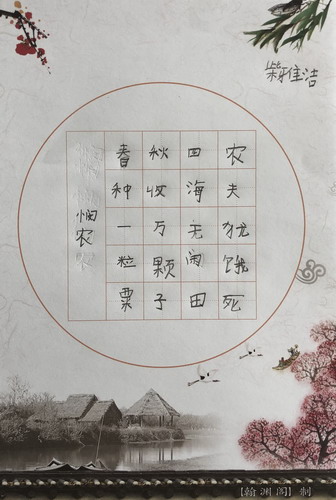 柴雅洁
悯农
春种一粒粟
秋收万颗子
四海无闲田
农夫犹饿死
【翰渊阁】制